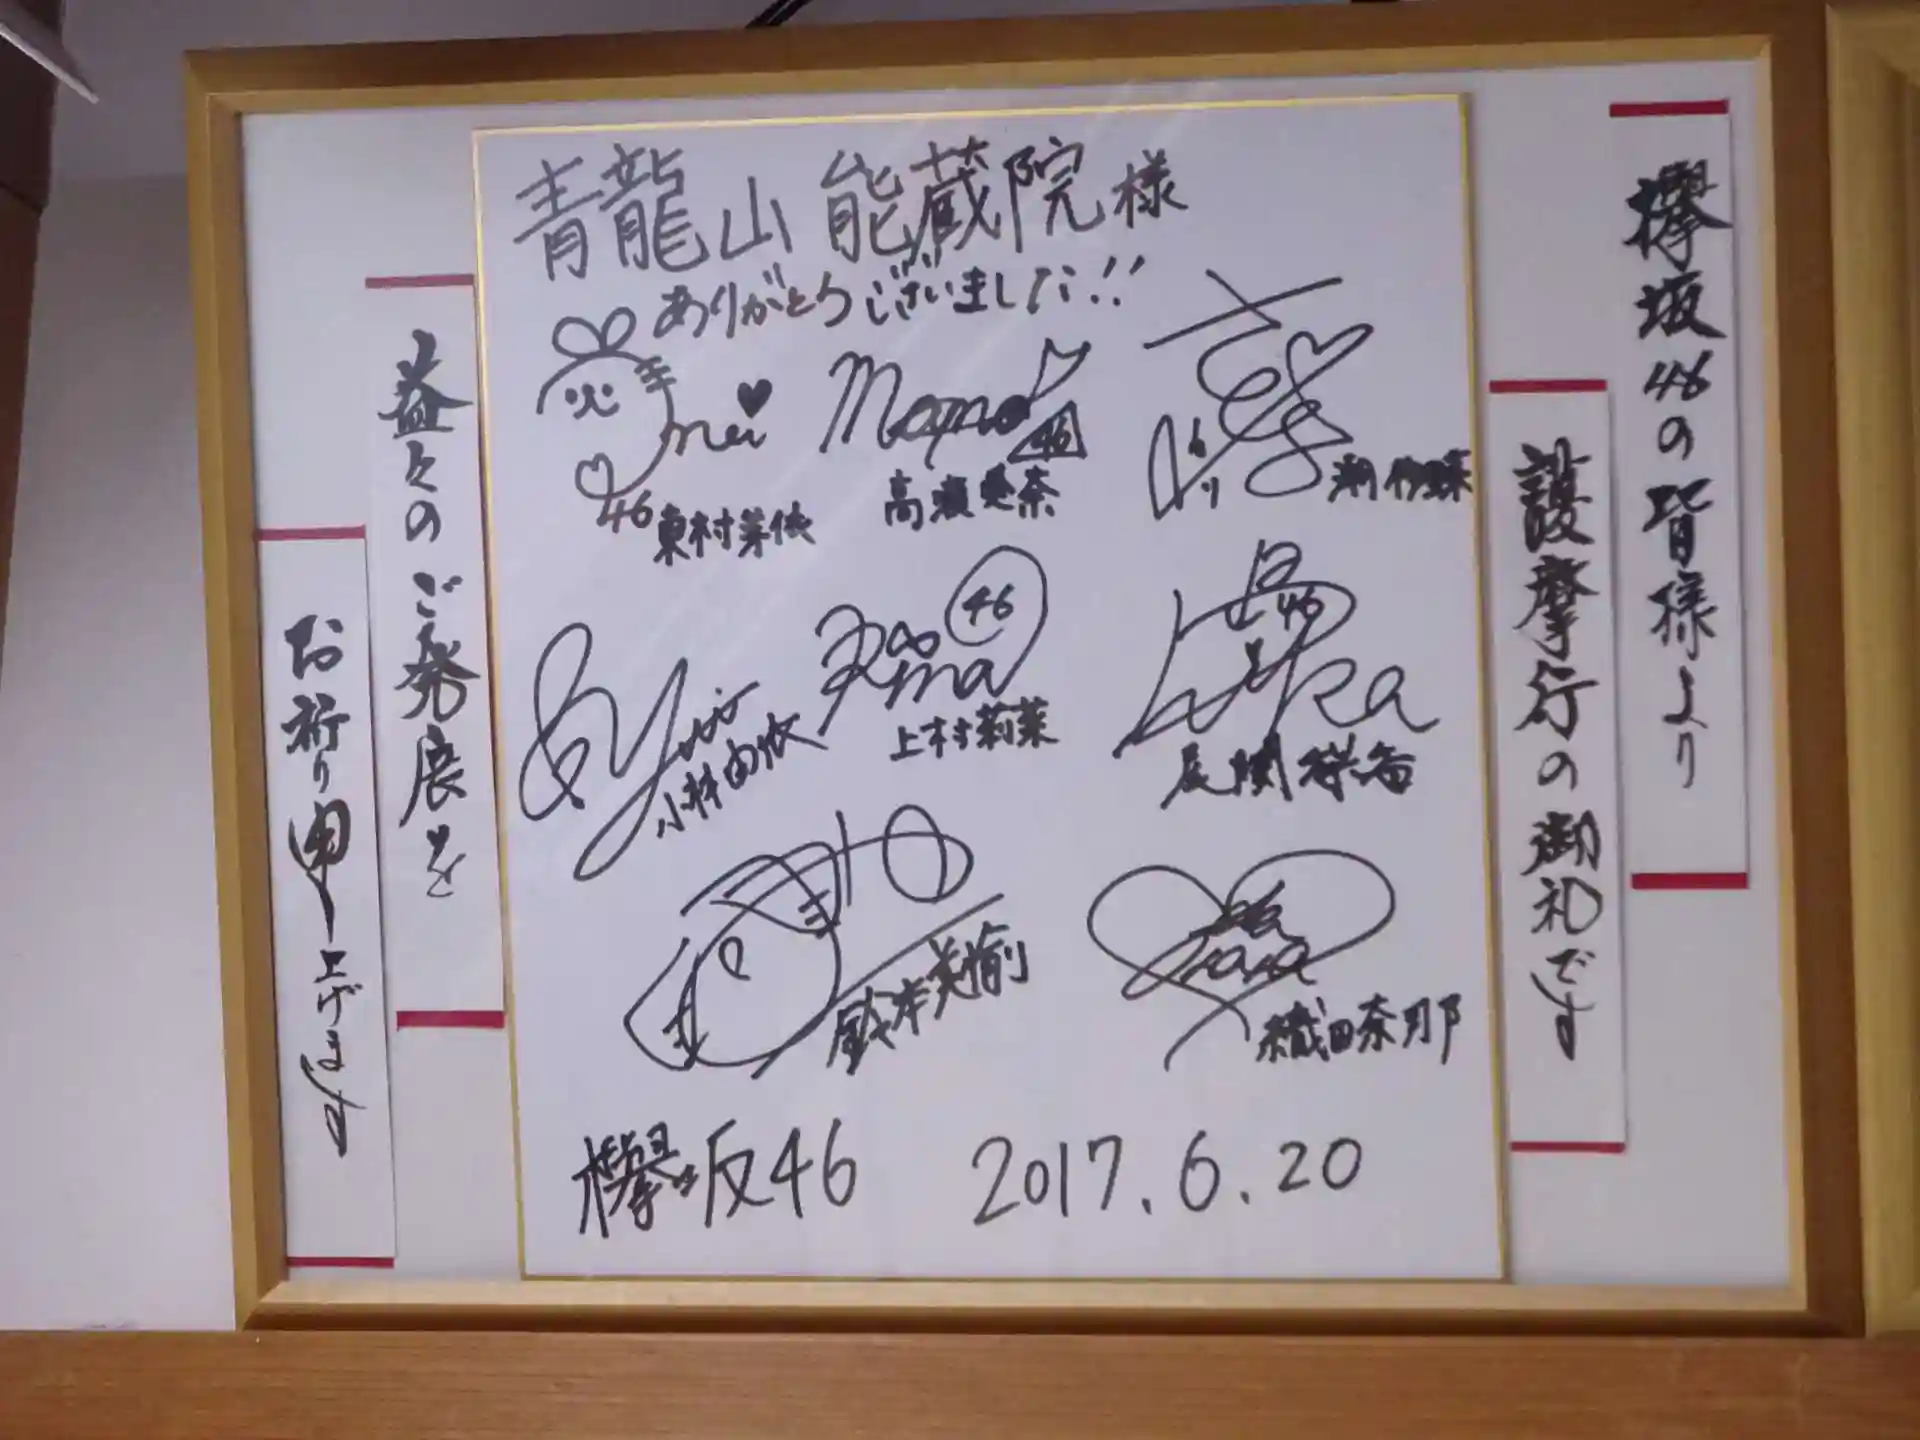 欅坂46の皆様より
護摩行の御礼です
青龍山 能蔵院様
ありがとうございました!!
mei
46
東村芽依
Mana
46
高瀬愛奈
潮紗理菜
Yui
小林由依
Rina
46
上村莉菜
46
Rika
尾関梨香
鈴本美愉
nana
織田奈那
欅坂46 2017.6.20
益々のご発展を
お祈り申し上げます